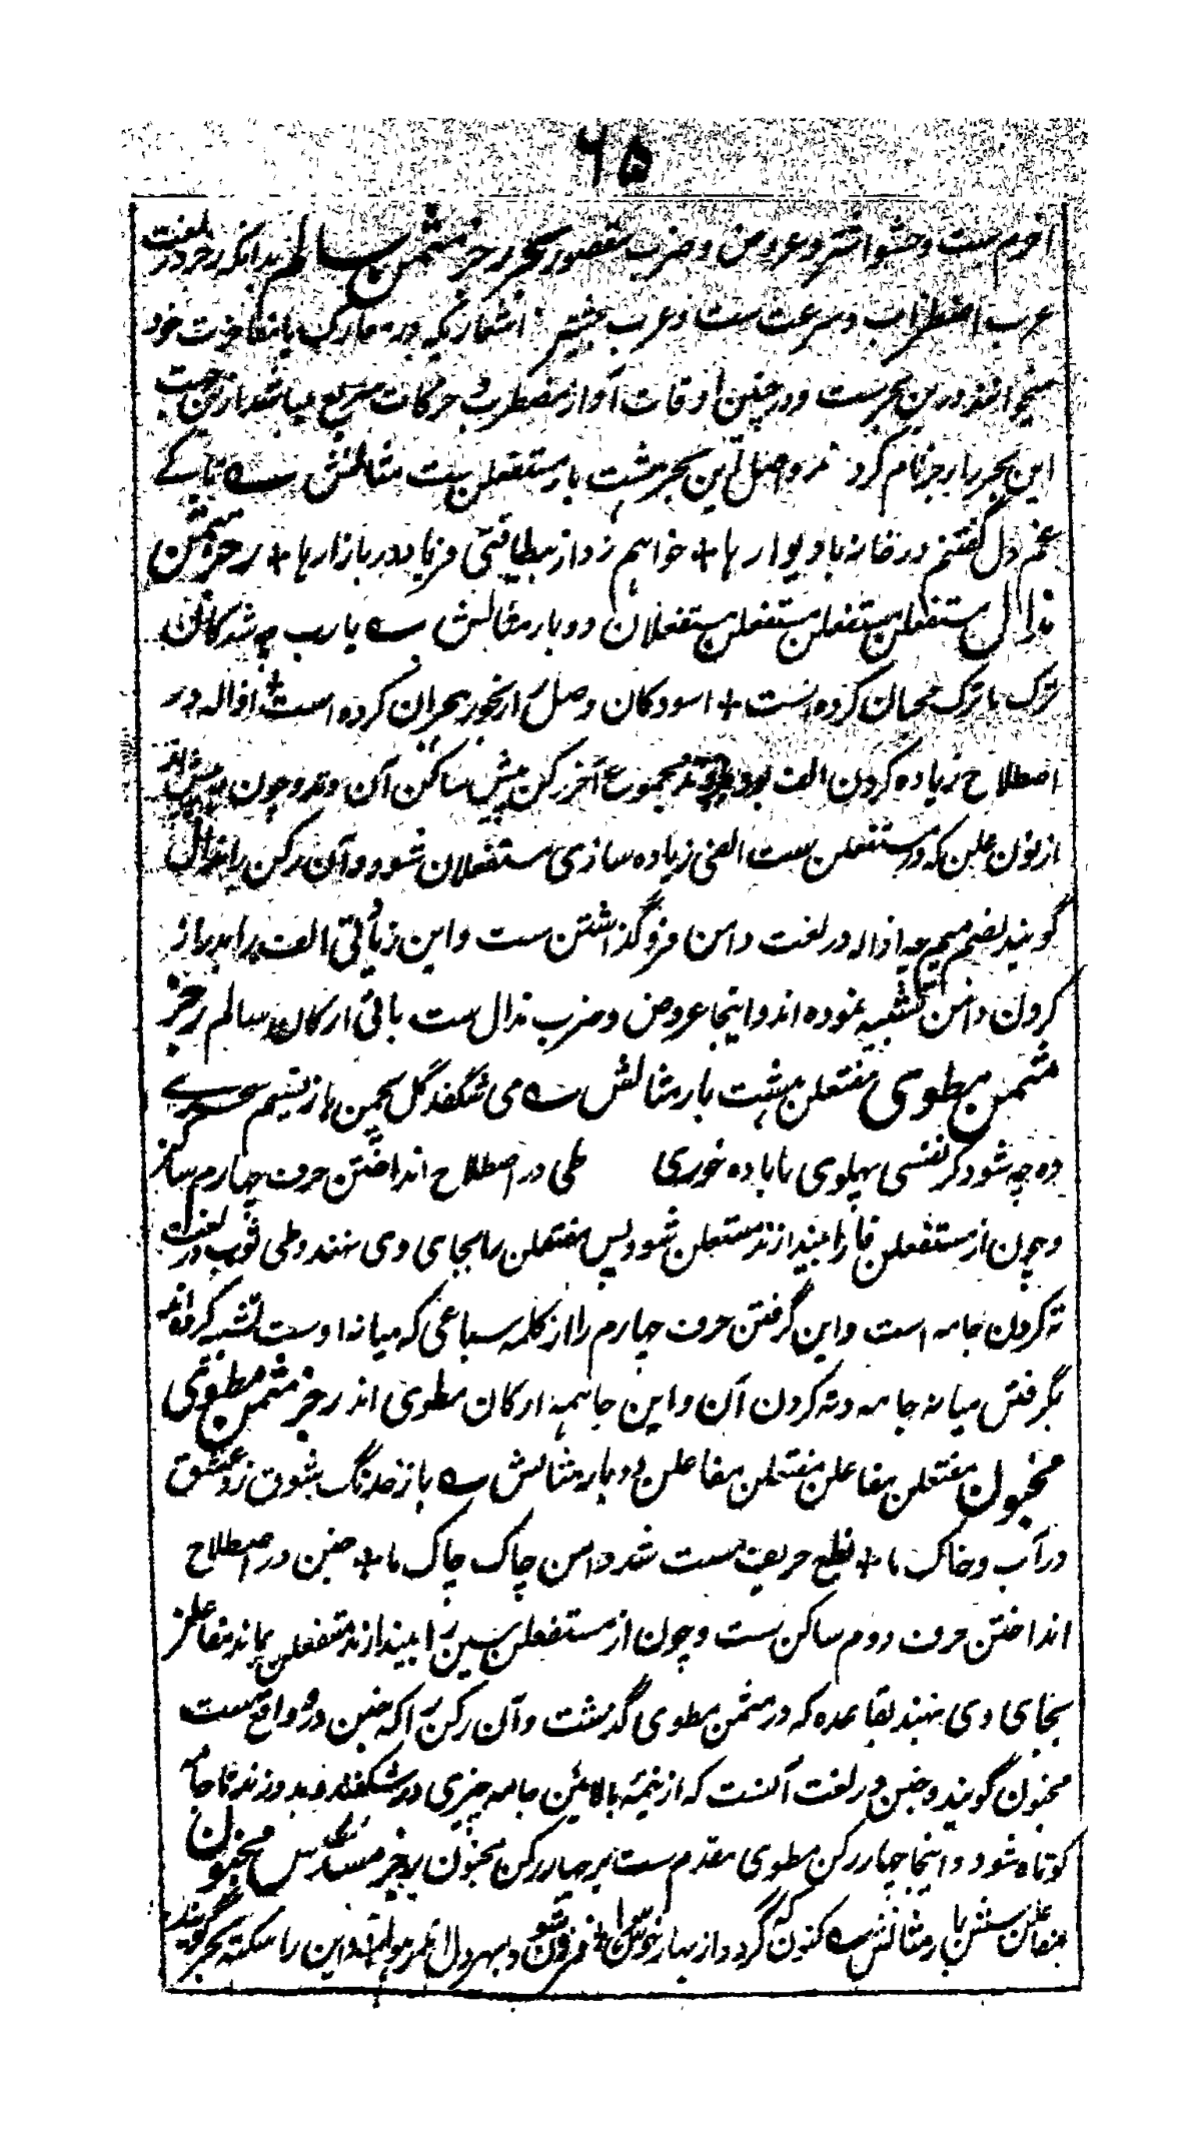 ۶۵
اخرم ست وحشو اشتر وعروض وضرب مقصور بحر رجز مثمن سالم بدانکه رجز در لغت
عرب اضطراب و سرعت ست و عرب بیشتر اشعاریکه در معارک یا مفاخرت خود
میخوانند درین بحرست و در چنین اوقات آواز مضطرب و حرکات سریع میباشد ازین جهت
این بحر را رجز نام کردند و اصل این بحر هشت بار مستفعلن ست مثالش ے تا کے
غم دل گفتم در خانه با دیوارها + خواهم زد از بیطاقتی فریاد در بازارها + رجز مثمن
مذال مستفعلن مستفعلن مستفعلن مستفعلان دوبار مثالش ے یارب چه شد کان
ترک ما ترک محبان کرده است + آسودگان وصل را رنجور هجران کرده است اذاله در
اصطلاح زیاده کردن الف بود در وتد مجموع آخر رکن پیش ساکن آن وتد و چون پیش
از نون علن که در مستفعلن ست الفی زیاده سازی مستفعلان شود و آن رکن را مذال
گویند بضم میم چه اذاله در لغت دامن فرو گذاشتن ست و این زیادتی الف را بدراز
کردن دامن تشبیه نموده اند و اینجا عروض و ضرب مذال ست باقی ارکان سالم رجز
مثمن مطوی مفتعلن هشت بار مثالش ے می شگفد گل بچمن باز نسیم سحرے
وه چه شود گر نفسی پهلوی ما باده خوری طی در اصطلاح انداختن حرف چهارم ساکن
و چون از مستفعلن فا را بیندازند مستعلن شود پس مفتعلن را بجای وی نهند و طی ثوب در لغت
ته کردن جامه است و این گرفتن حرف چهارم را از کلمه سباعی که میانه اوست تشبیه کرده اند
بگرفتن میانه جامه و ته کردن آن و این جا همه ارکان مطوی اند رجز مثمن مطوی
مخبون مفتعلن مفاعلن مفتعلن مفاعلن دوبار مثالش ے باز خدنگ شوق زد عشق
در آب و خاک ما + نطع حریف مست شد دامن چاک چاک ما + خبن در اصطلاح
انداختن حرف دوم ساکن ست و چون از مستفعلن سین را بیندازند متفعلن بماند مفاعلن
بجای وی نهند بقاعده که در مثمن مطوی گذشت و آن رکن را که خبن درو واقع ست
مخبون گویند و خبن در لغت آنست که از نیمهٔ بالائین جامه چیزی در شکنند و بدوزند تا جامه
کوتاه شود و اینجا چهار رکن مطوی مقدم ست بر چهار رکن مخبون رجز مسدس مخبون
مفاعلن شش بار مثالش ے کنون که گردد از بهار خوش هوا فزون شود بهر دل اندر و این را سکته بحر گویند